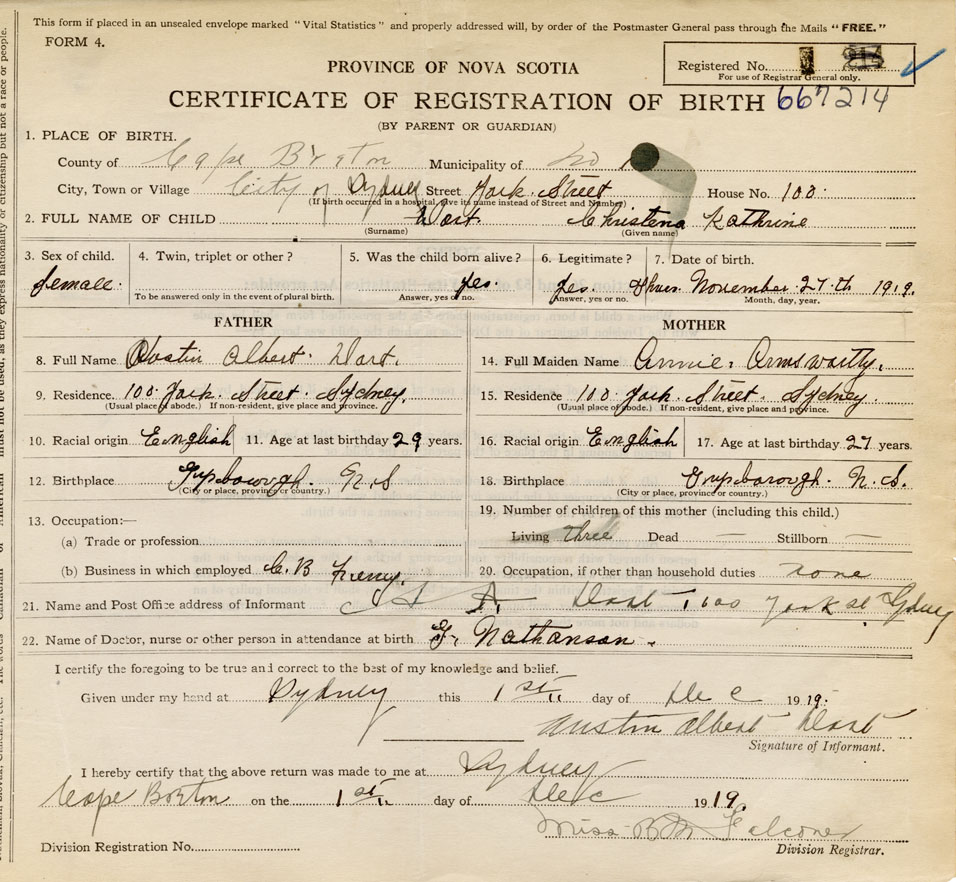 This form if placed in an unsealed envelope marked "Vital Statistics" and properly addressed will, by order of the Postmaster General pass through the Mails "FREE."
FORM 4.
Registered No.
For use of Registrar General only.
PROVINCE OF NOVA SCOTIA
CERTIFICATE OF REGISTRATION OF BIRTH 667214
(BY PARENT OR GUARDIAN)
1. PLACE OF BIRTH.
County of Cape Breton Municipality of
City, Town or Village City of Sydney Street York Street House No. 100
(If birth occurred in a hospital, give its name instead of Street and Number)
2. FULL NAME OF CHILD Dort Christena Kathrine
(Surname) (Given name)
3. Sex of child. 4. Twin, triplet or other? 5. Was the child born alive? 6. Legitimate? 7. Date of birth.
female. yes. yes. Thurs. November 27th 1919.
To be answered only in the event of plural birth. Answer, yes or no. Answer, yes or no. Month, day, year.
FATHER MOTHER
8. Full Name Austin Albert Dort. 14. Full Maiden Name Annie Armsworthy.
9. Residence. 100 York Street Sydney. 15. Residence 100 York Street. Sydney.
(Usual place of abode.) If non-resident, give place and province. (Usual place of abode.) If non-resident, give place and province.
10. Racial origin English 11. Age at last birthday 29 years. 16. Racial origin English 17. Age at last birthday 27 years.
12. Birthplace N.S 18. Birthplace N.S.
(City or place, province or country.) (City or place, province or country.)
13. Occupation:— 19. Number of children of this mother (including this child.)
(a) Trade or profession Living three Dead — Stillborn —
(b) Business in which employed C.B 20. Occupation, if other than household duties none
21. Name and Post Office address of Informant A Dort 100 York St Sydney
22. Name of Doctor, nurse or other person in attendance at birth Nathanson.
I certify the foregoing to be true and correct to the best of my knowledge and belief.
Given under my hand at Sydney this 1st day of Dec 1919.
Austin Albert Dort
Signature of Informant.
I hereby certify that the above return was made to me at Sydney
Cape Breton on the 1st day of Dec 1919.
Miss B M Falconer
Division Registration No. Division Registrar.